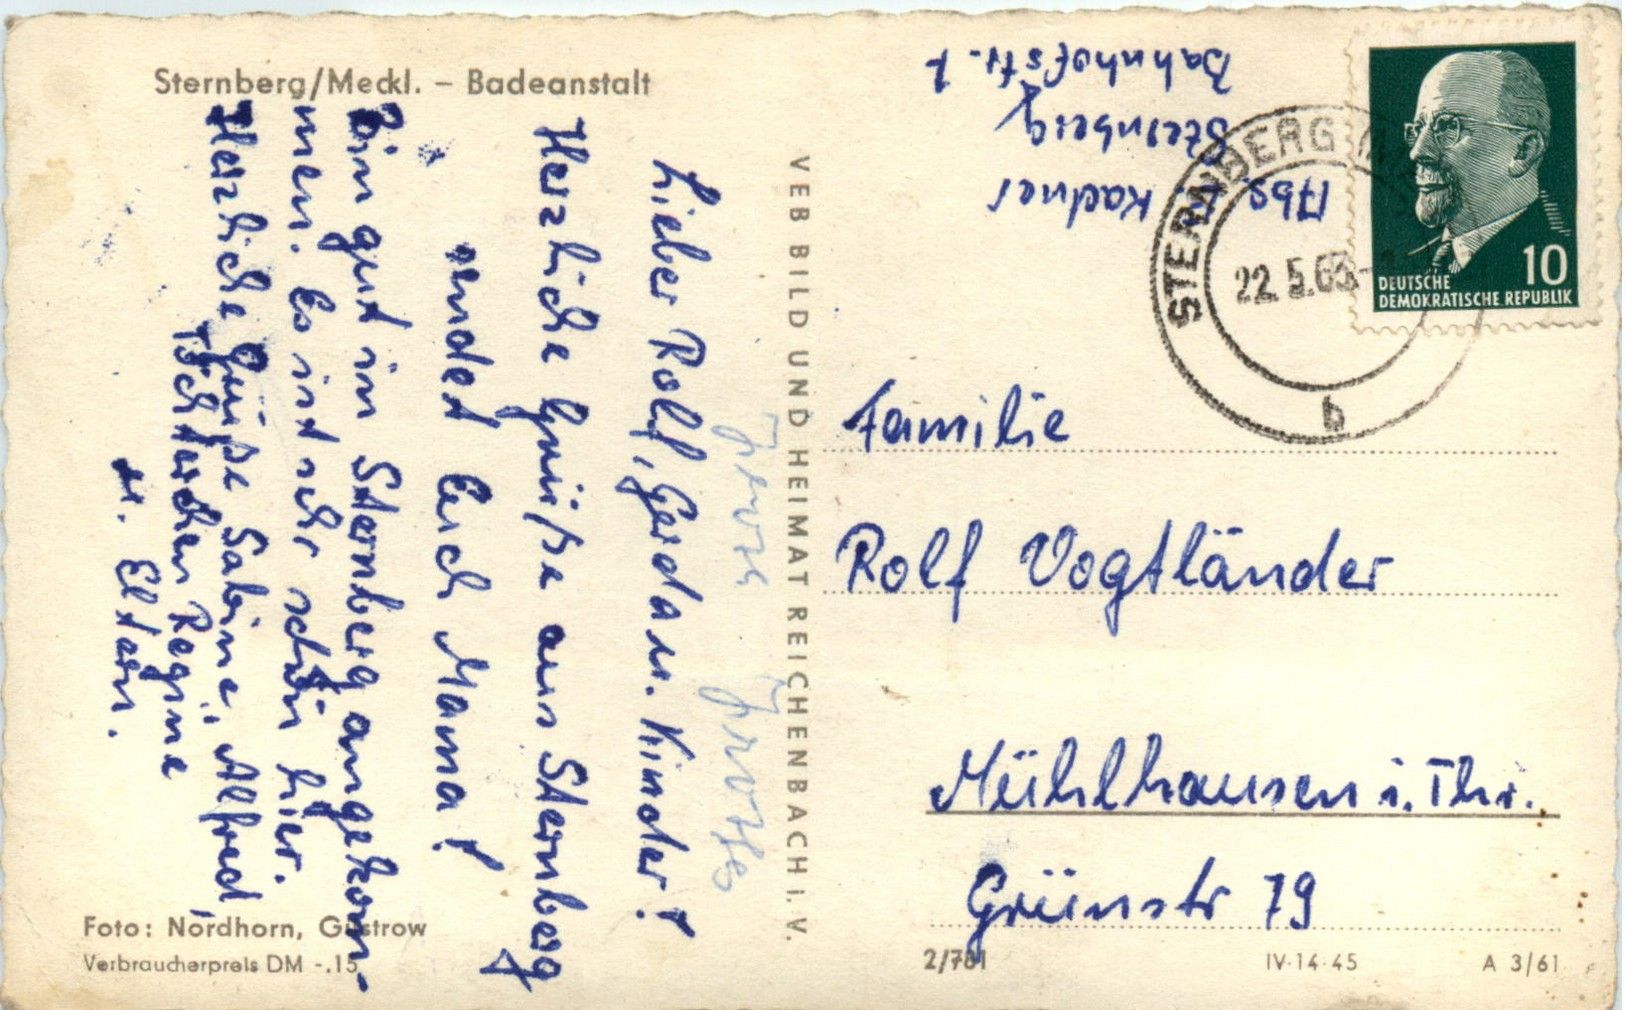 Sternberg/Meckl. – Badeanstalt
Lieber Rolf, Gerda u. Kinder!
Herzliche Grüße aus Sternberg
sendet Euch Mama!
Bin gut in Sternberg angekom-
men. Es ist sehr schön hier.
Herzliche Grüße Sabine, Alfred,
Töchterchen Regine
u. Eltern.
Foto: Nordhorn, Güstrow
Verbraucherpreis DM -.15
VEB BILD UND HEIMAT REICHENBACH I. V.
Abs. Kadner
Sternberg
Bahnhofstr. 1
STERNBERG
22.5.63
b
DEUTSCHE
DEMOKRATISCHE REPUBLIK
10
Familie
Rolf Vogtländer
Mühlhausen i. Thr.
Grünstr 79
2/781
IV-14-45
A 3/61